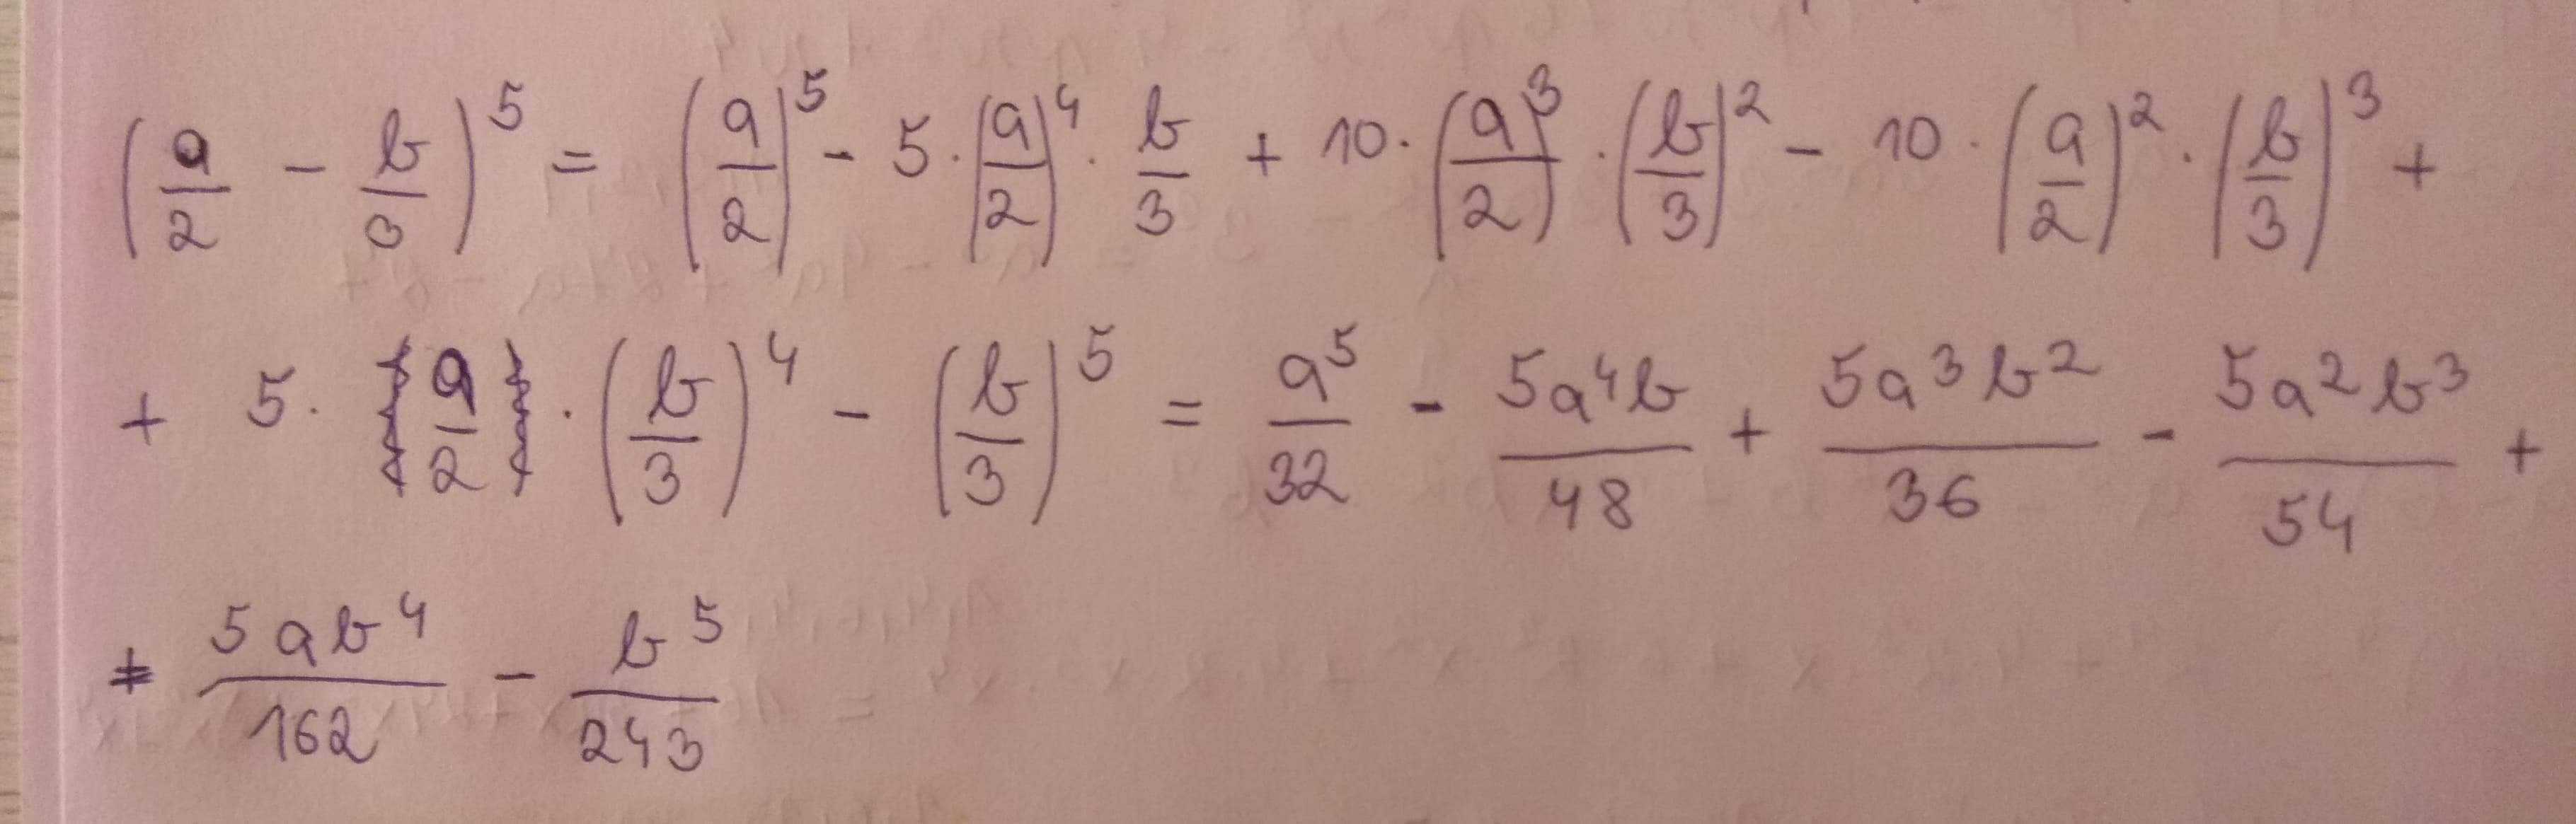 (a/2 - b/3)^5 = (a/2)^5 - 5·(a/2)^4 · b/3 + 10·(a/2)^3·(b/3)^2 - 10·(a/2)^2·(b/3)^3 +
+ 5· a/2 ·(b/3)^4 - (b/3)^5 = a^5/32 - 5a^4b/48 + 5a^3b^2/36 - 5a^2b^3/54 +
+ 5ab^4/162 - b^5/243